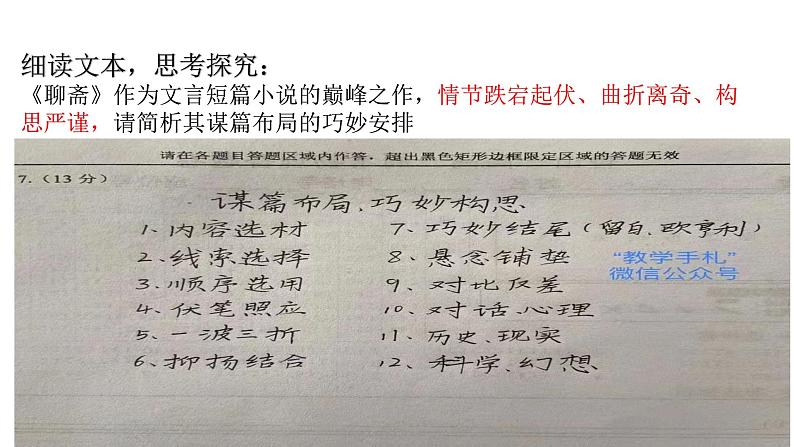 细读文本，思考探究：
《聊斋》作为文言短篇小说的巅峰之作，情节跌宕起伏、曲折离奇、构
思严谨，请简析其谋篇布局的巧妙安排
请在各题目答题区域内作答，超出黑色矩形边框限定区域的答题无效
7.（13 分）
谋篇布局、巧妙构思
1、内容选材
2、线索选择
3、顺序选用
4、伏笔照应
5、一波三折
6、抑扬结合
7、巧妙结尾（留白、欧亨利）
8、悬念铺垫
9、对比反差
10、对话、心理
11、历史、现实
12、科学、幻想
“教学手札”
微信公众号